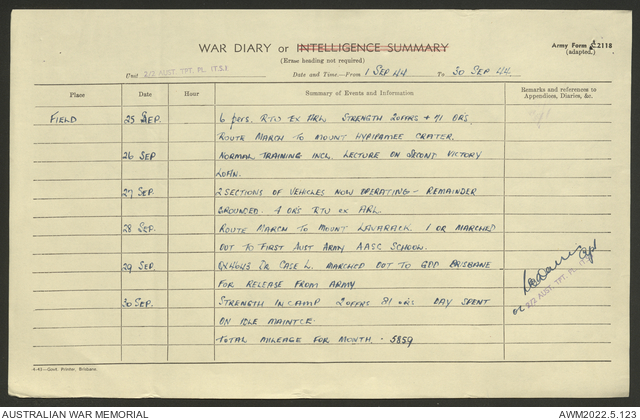 WAR DIARY or INTELLIGENCE SUMMARY
Army Form C.2118
(adapted.)
(Erase heading not required)
Unit 2/2 AUST. TPT. PL. (T.S.) Date and Time—From 1 SEP 44 To 30 SEP 44
Place Date Hour Summary of Events and Information Remarks and references to Appendices, Diaries, &c.
FIELD 25 SEP. 6 pers. RTU EX ARL STRENGTH 2 OFFRS + 71 ORS.
ROUTE MARCH TO MOUNT HYPIPAMEE CRATER.
26 SEP NORMAL TRAINING INCL. LECTURE ON SECOND VICTORY
LOAN.
27 SEP. 2 SECTIONS OF VEHICLES NOW OPERATING - REMAINDER
GROUNDED. 4 ORS RTU EX ARL.
28 SEP. ROUTE MARCH TO MOUNT LAVARACK. 1 OR MARCHED
OUT TO FIRST AUST ARMY AASC SCHOOL.
29 SEP. CASE L. MARCHED OUT TO GDD BRISBANE
FOR RELEASE FROM ARMY
30 SEP. STRENGTH IN CAMP 2 OFFRS 81 ORS DAY SPENT
ON IDLE MAINTCE.
TOTAL MILEAGE FOR MONTH. - 5859
Capt
OC 2/2 AUST. TPT. PL. (T.S.)
4-43—Govt. Printer, Brisbane.
AUSTRALIAN WAR MEMORIAL AWM2022.5.123